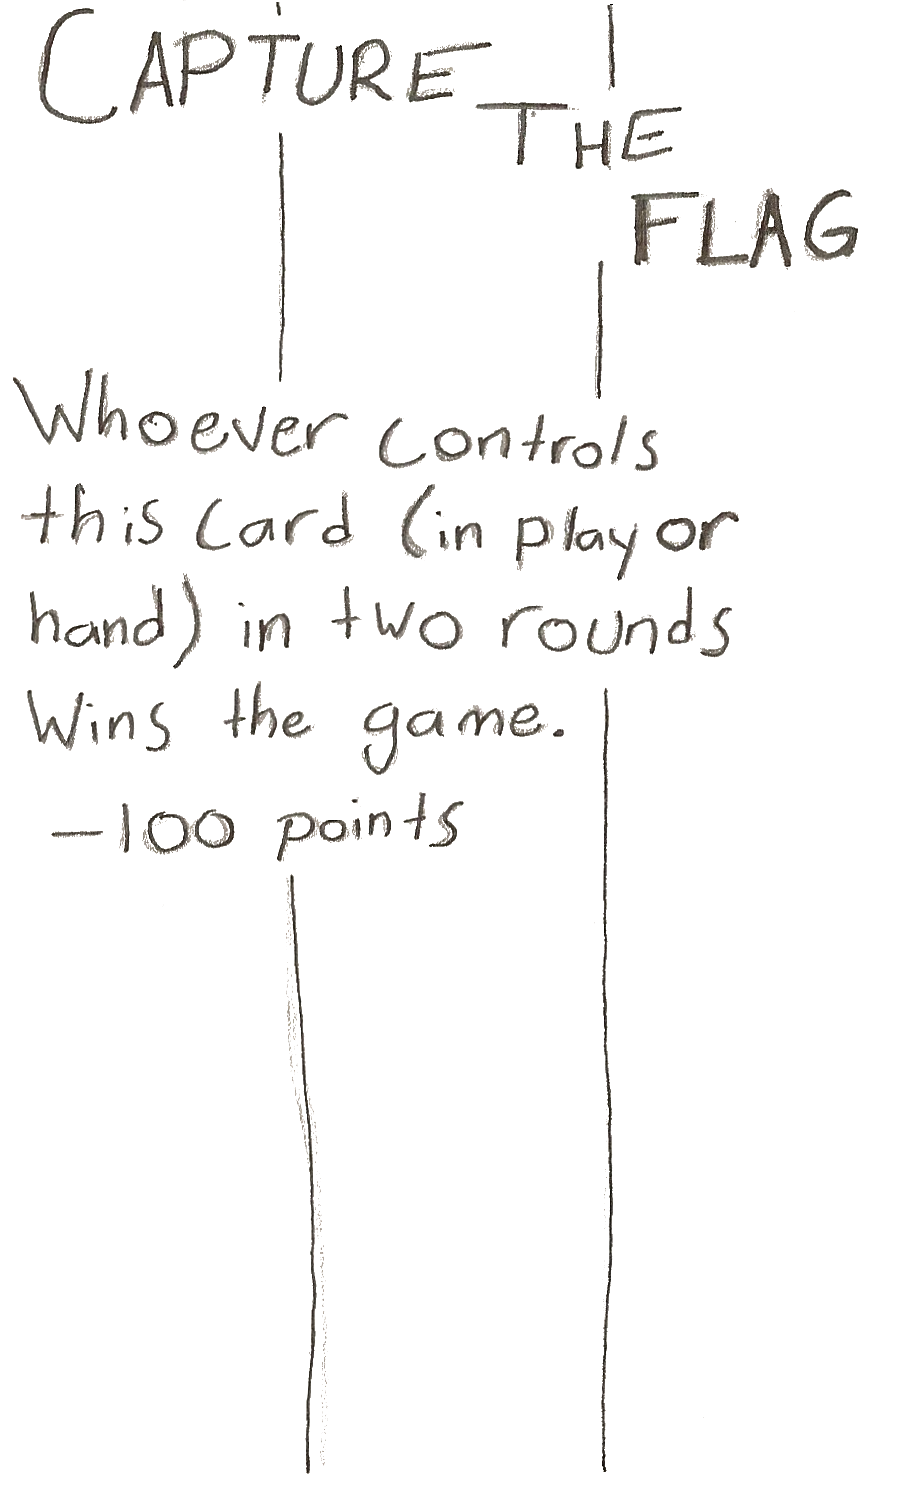 CAPTURE
THE
FLAG
Whoever controls
this card (in play or
hand) in two rounds
wins the game.
-100 points